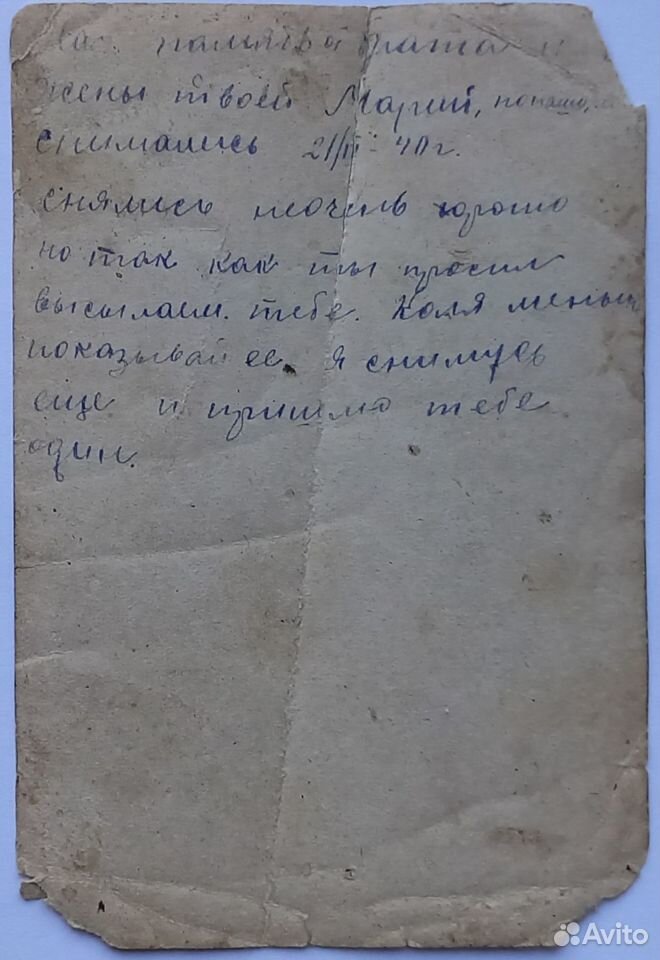 На память от брата и
жены твоей Марии,
снимались 21/II-40 г.
снялись неочень хорошо
но так как ты просил
высылаем. тебе. Коля меньш
показывай ее. я снимусь
еще и пришлю тебе
один.
Avito